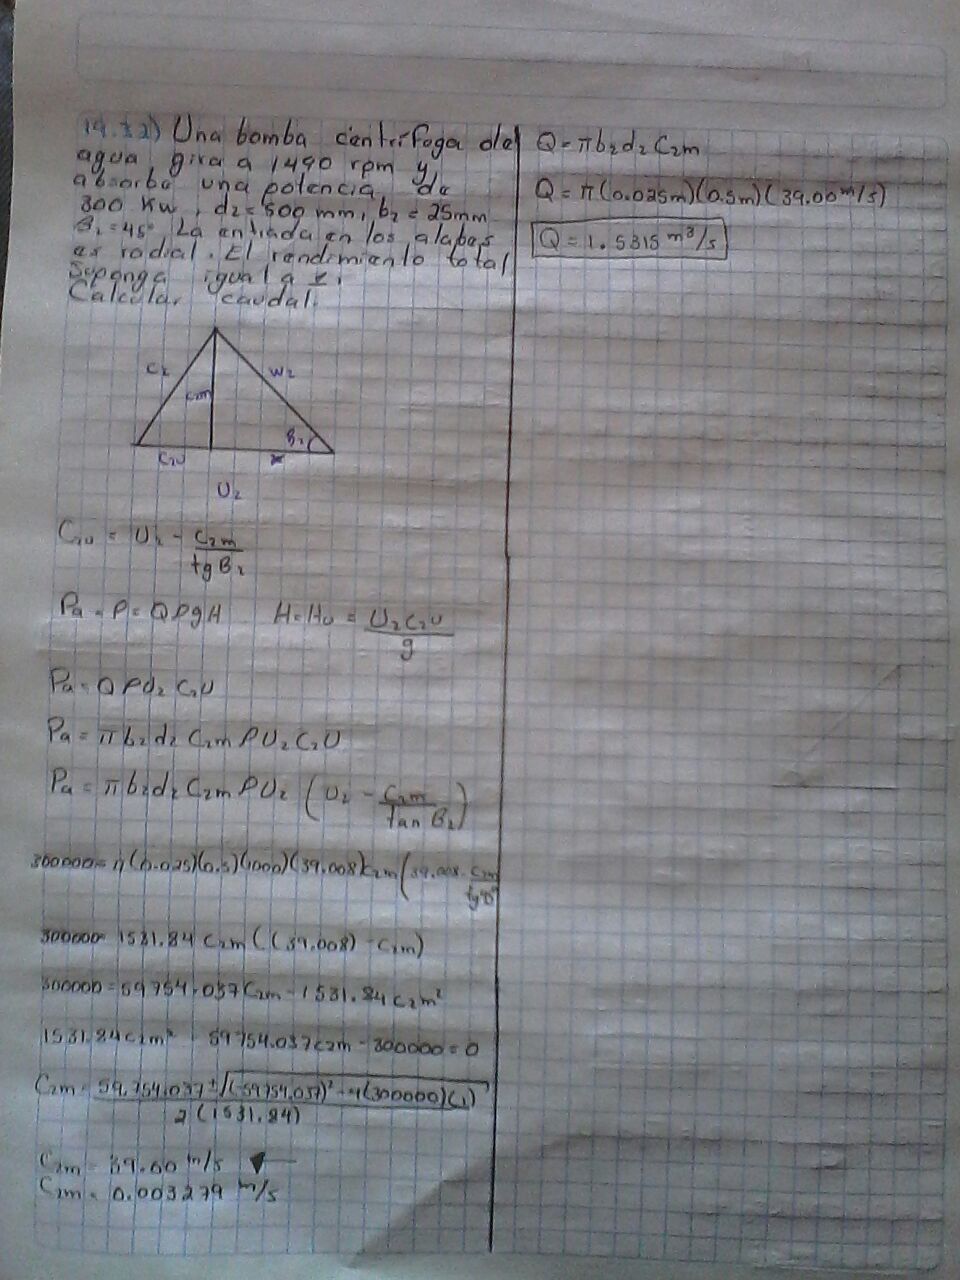 19.22) Una bomba centrífuga de
agua gira a 1490 rpm y
absorbe una potencia de
300 Kw, d₂=500 mm, b₂=25mm
β₂=45° La entrada en los alabes
es radial. El rendimiento total
Suponga igual a 1.
Calcular caudal.
C₂
W₂
C₂m
β₂
C₂U
x
U₂
C₂U = U₂ - C₂m / tg β₂
Pa = P = QρgH H=Hu = U₂C₂U / g
Pa = Qρd₂ C₂U
Pa = πb₂d₂ C₂m ρU₂C₂U
Pa = πb₂d₂ C₂m ρU₂ (U₂ - C₂m / tan β₂)
300000= π(0.025)(0.5)(1000)(39.008)C₂m(39.008 - C₂m / tg45°
300000= 1531.84 C₂m((39.008) - C₂m)
300000=59754.037C₂m - 1531.84 C₂m²
1531.84C₂m² - 59754.037C₂m - 300000=0
C₂m= 59.754.037±√(-59754.037)² -4(300000)(1) / 2(1531.84)
C₂m= 39.00 m/s
C₂m= 0.003279 m/s
Q=πb₂d₂C₂m
Q=π(0.025m)(0.5m)(39.00 m/s)
Q=1.5315 m³/s